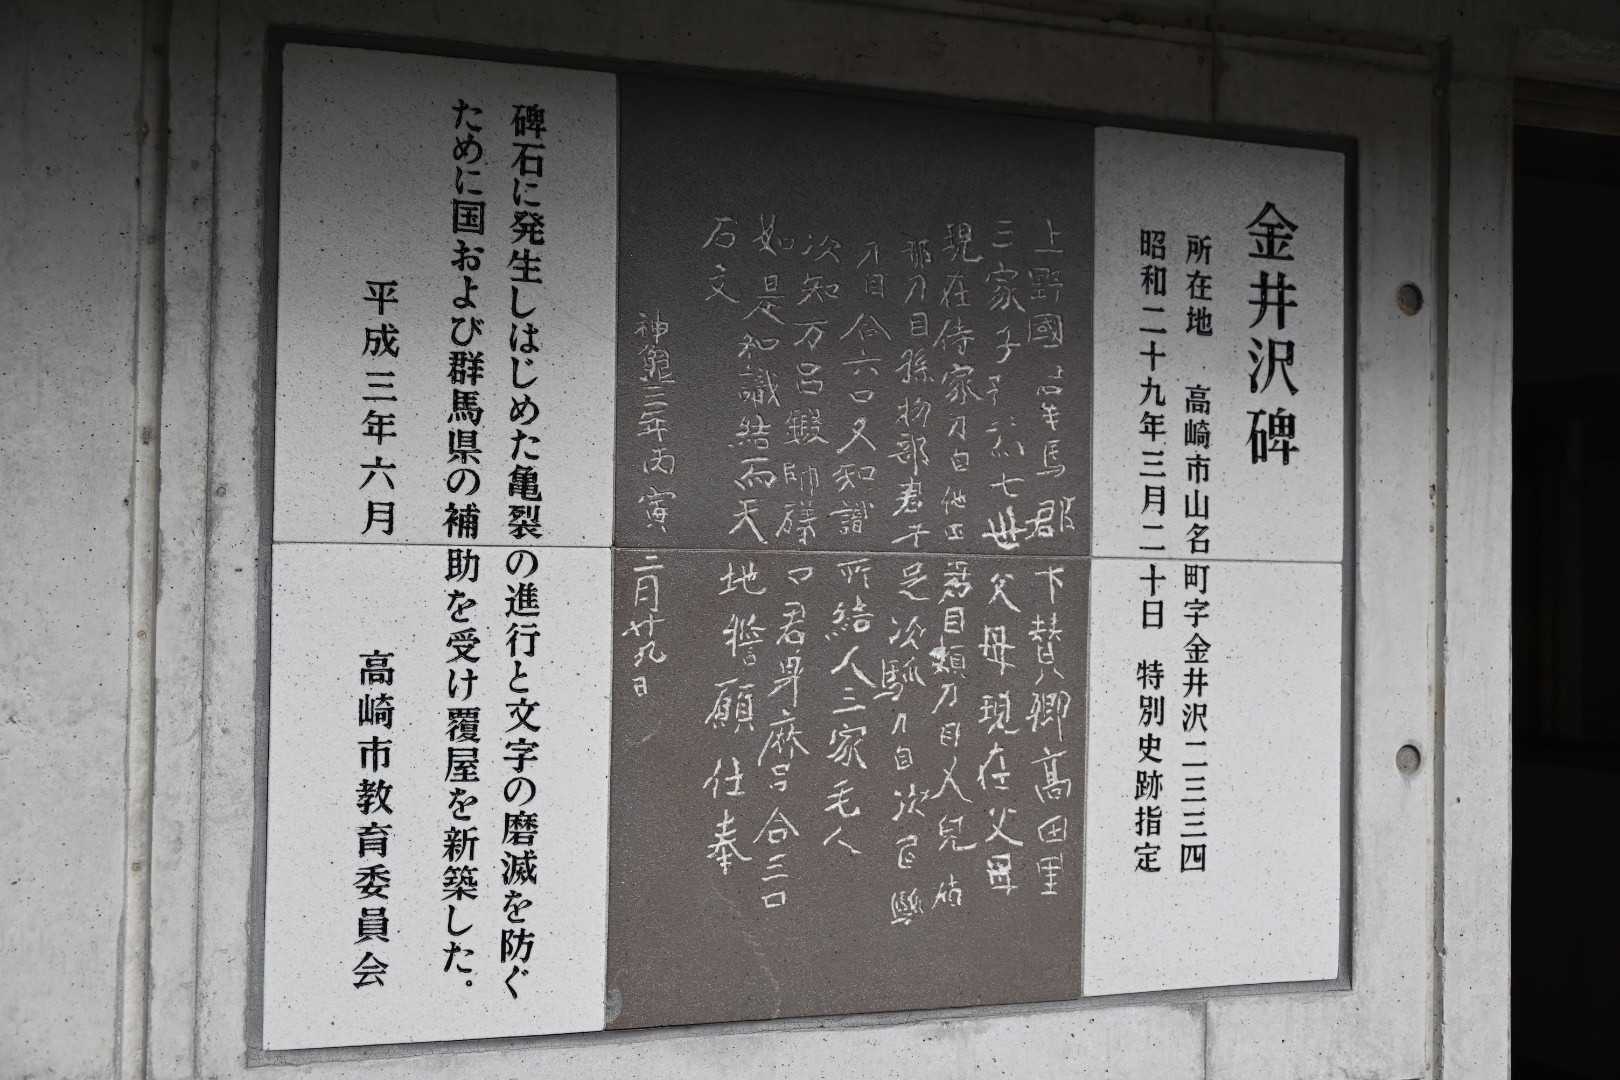 金井沢碑
所在地 高崎市山名町字金井沢二三三四
昭和二十九年三月二十日 特別史跡指定
上野國群馬郡下賛郷高田里
三家子□為七世父母現在父母
現在侍家刀自他田君目頬刀自又児加
那刀自孫物部君午足次馴刀自次乙馴
刀自合六口又知識所結人三家毛人
次知万呂鍛師礒マ君身麻呂合三口
如是知識結而天地誓願仕奉
石文
神亀三年丙寅二月廿九日
碑石に発生しはじめた亀裂の進行と文字の磨滅を防ぐ
ために国および群馬県の補助を受け覆屋を新築した。
平成三年六月 高崎市教育委員会